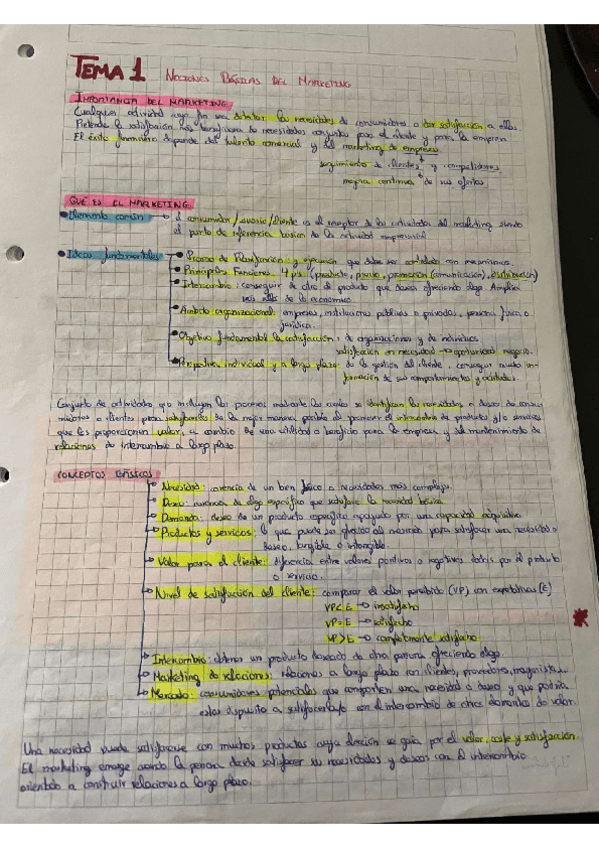 TEMA 1 NOCIONES BÁSICAS DEL MARKETING
IMPORTANCIA DEL MARKETING
Cualquier actividad cuyo fin sea detectar las necesidades de consumidores a dar satisfacción a ellas.
Pretende la satisfacción más beneficiosa de necesidades conjuntas para el cliente y para la empresa
El éxito financiero depende del talento comercial y del marketing de empresas
seguimiento de clientes y competidores
mejora continua de sus ofertas
QUÉ ES EL MARKETING
Elemento común → el consumidor/usuario/cliente es el receptor de las actividades del marketing siendo
el punto de referencia básico de la actividad empresarial
Ideas fundamentales → Proceso de Planificación: y ejecución que debe ser controlado con mecanismos.
Principales Funciones: 4 p's (producto, precio, promoción (comunicación), distribución)
Intercambio: conseguir de otro el producto que desea ofreciendo algo. Amplía
más allá de lo económico
Ámbito organizacional: empresas, instituciones públicas o privadas, persona física o
jurídica.
Objetivo fundamental la satisfacción: de organizaciones y de individuos
satisfacción en necesidad → oportunidad negocio.
Perspectiva individual y a largo plazo: de la gestión del cliente, conseguir mucha in-
formación de sus comportamientos y actitudes.
Conjunto de actividades que incluyen los procesos mediante los cuales se identifican las necesidades o deseos de consu-
midores o clientes para satisfacerlos de la mejor manera posible al promover el intercambio de productos y/o servicios
que les proporcionen valor, a cambio de una utilidad o beneficio para la empresa y del mantenimiento de
relaciones de intercambio a largo plazo.
CONCEPTOS BÁSICOS
Necesidad: carencia de un bien físico o necesidades más complejas.
Deseo: carencia de algo específico que satisface la necesidad básica
Demanda: deseo de un producto específico apoyado por una capacidad adquisitiva
Productos y servicios: lo que puede ser ofrecido al mercado para satisfacer una necesidad o
deseo, tangible o intangible.
Valor para el cliente: diferencia entre valores positivos o negativos dados por el producto
o servicio.
Nivel de satisfacción del cliente: comparar el valor percibido (VP) con expectativas (E)
VP<E → insatisfecho
VP=E → satisfecho
VP>E → completamente satisfecho
Intercambio: obtener un producto deseado de otra persona ofreciendo algo.
Marketing de relaciones: relaciones a largo plazo con clientes, proveedores, mayoristas..
Mercado: consumidores potenciales que comparten una necesidad o deseo y que podría
estar dispuesto a satisfacerlo con el intercambio de otros elementos de valor.
Una necesidad puede satisfacerse con muchos productos cuya elección se guía por el valor, coste y satisfacción
El marketing emerge cuando la persona decide satisfacer sus necesidades y deseos con el intercambio
orientado a construir relaciones a largo plazo.